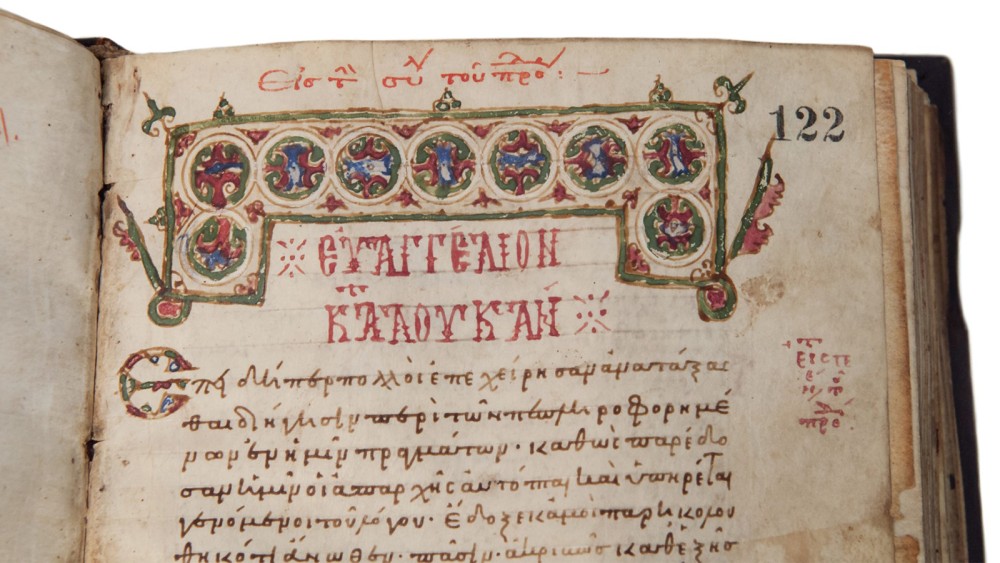 Εἰς τ συ τοῦ προ :
122
ΕΥΑΓΓΕΛΙΟΝ
ΚΑΤΑ ΛΟΥΚΑΝ
Ἐπειδήπερ πολλοὶ ἐπεχείρησαν ἀνατάξασ
θαι διήγησιν περὶ τῶν πεπληροφορημέ
νων ἐν ἡμῖν πραγμάτων· καθὼς παρέδο
σαν ἡμῖν οἱ ἀπαρχῆς αὐτόπται καὶ ὑπηρέται
γενόμενοι τοῦ λόγου· Ἔδοξε κἀμοὶ παρηκολου
θηκότι ἄνωθεν· πᾶσιν· ἀκριβῶς καθεξῆς